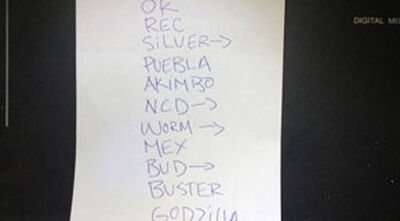 OK
REC
SILVER→
PUEBLA
AKIMBO
NCD→
WORM→
MEX
BUD→
BUSTER
GODZILLA
DIGITAL